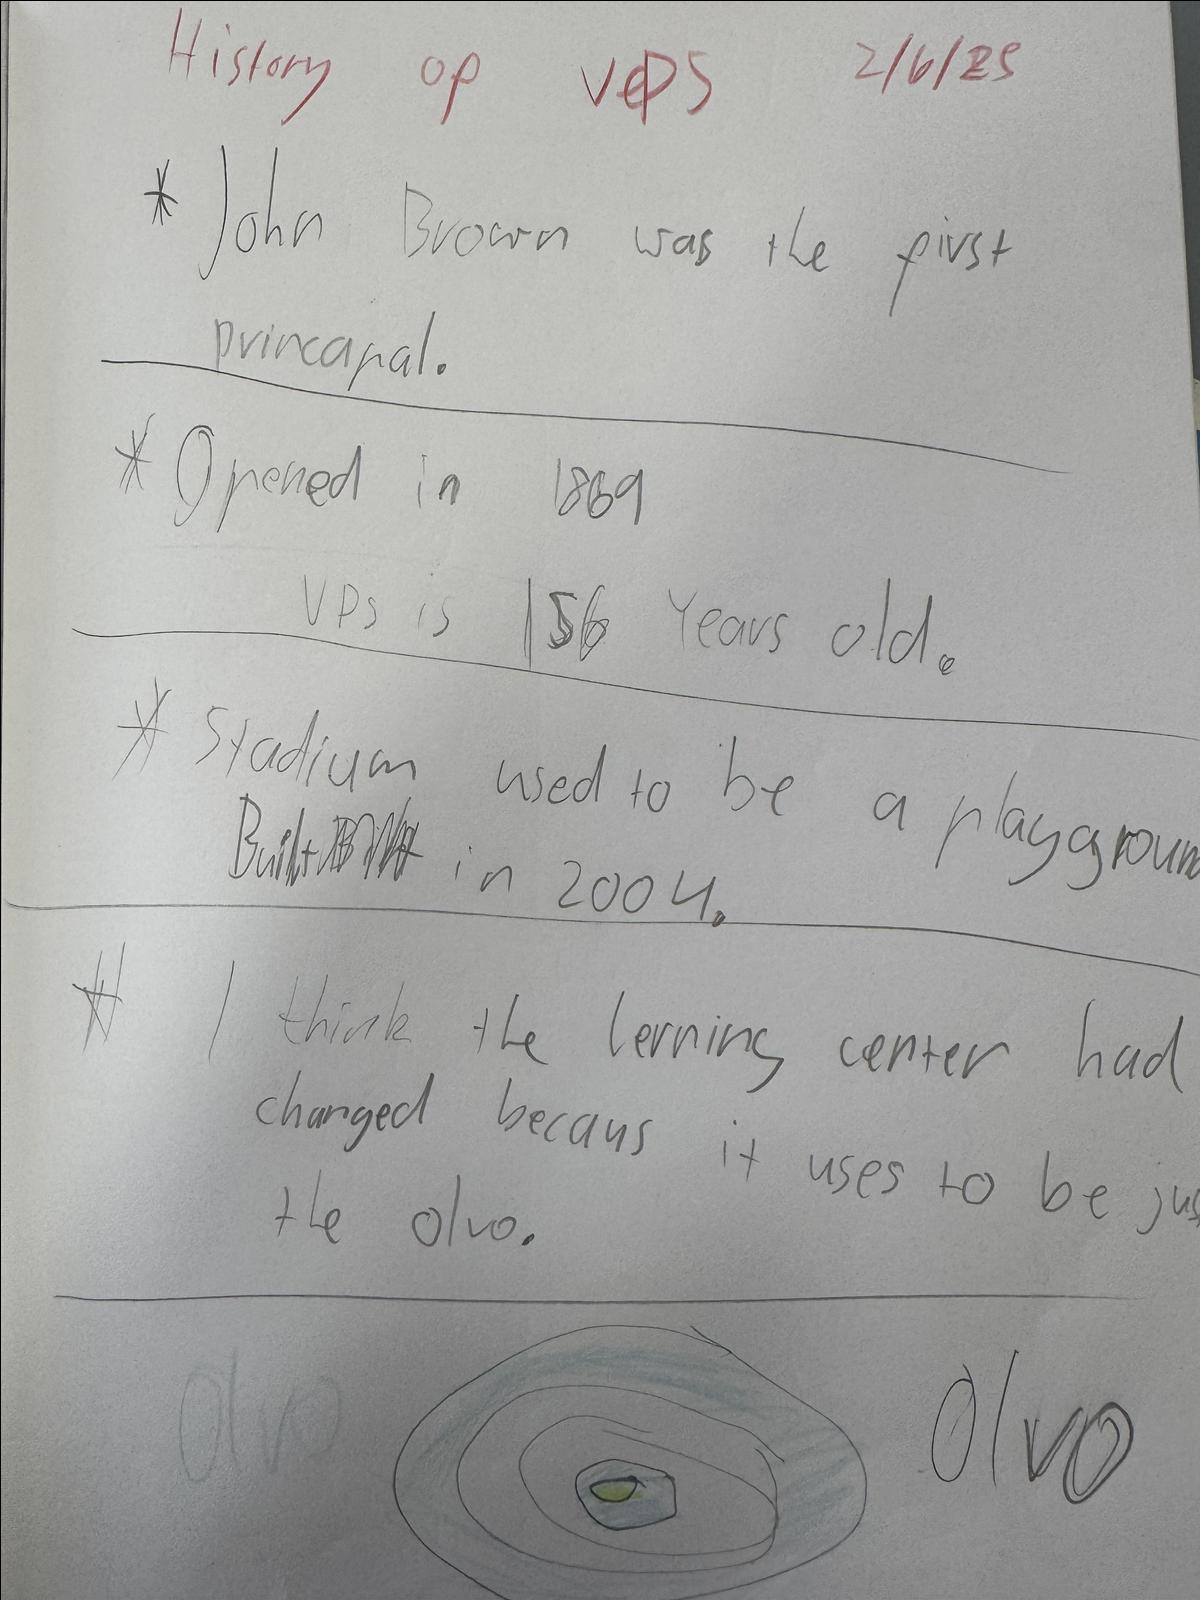 History of VPS 2/6/25
* John Brown was the first
princapal.
* Opened in 1869
VPS is 156 Years old.
* Stadium used to be a playground
Built in 2004.
* I think the lerning center had
changed becaus it uses to be jus
the olvo.
Olvo Olvo